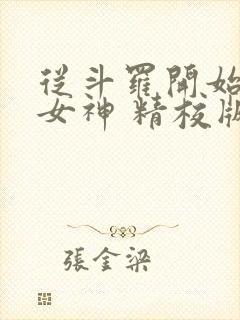 從斗羅開始
女神 精校版
張金梁